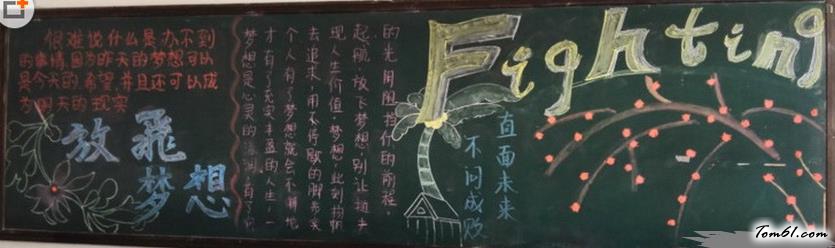 很难说什么是办不到
的事情,因为昨天的梦想可以
是今天的希望,并且还可以成
为明天的现实
放飛
梦想
梦想是心灵的
才有了充实丰盈的人生,一
个人有了梦想就会不懈地
去追求,用不停歇的脚步实
现人生价值,梦想,此刻扬帆
起航,放飞梦想,别让过去
的光阴阻挡你的前程。
Fighting
直面未来
不问成败
Tom61.com